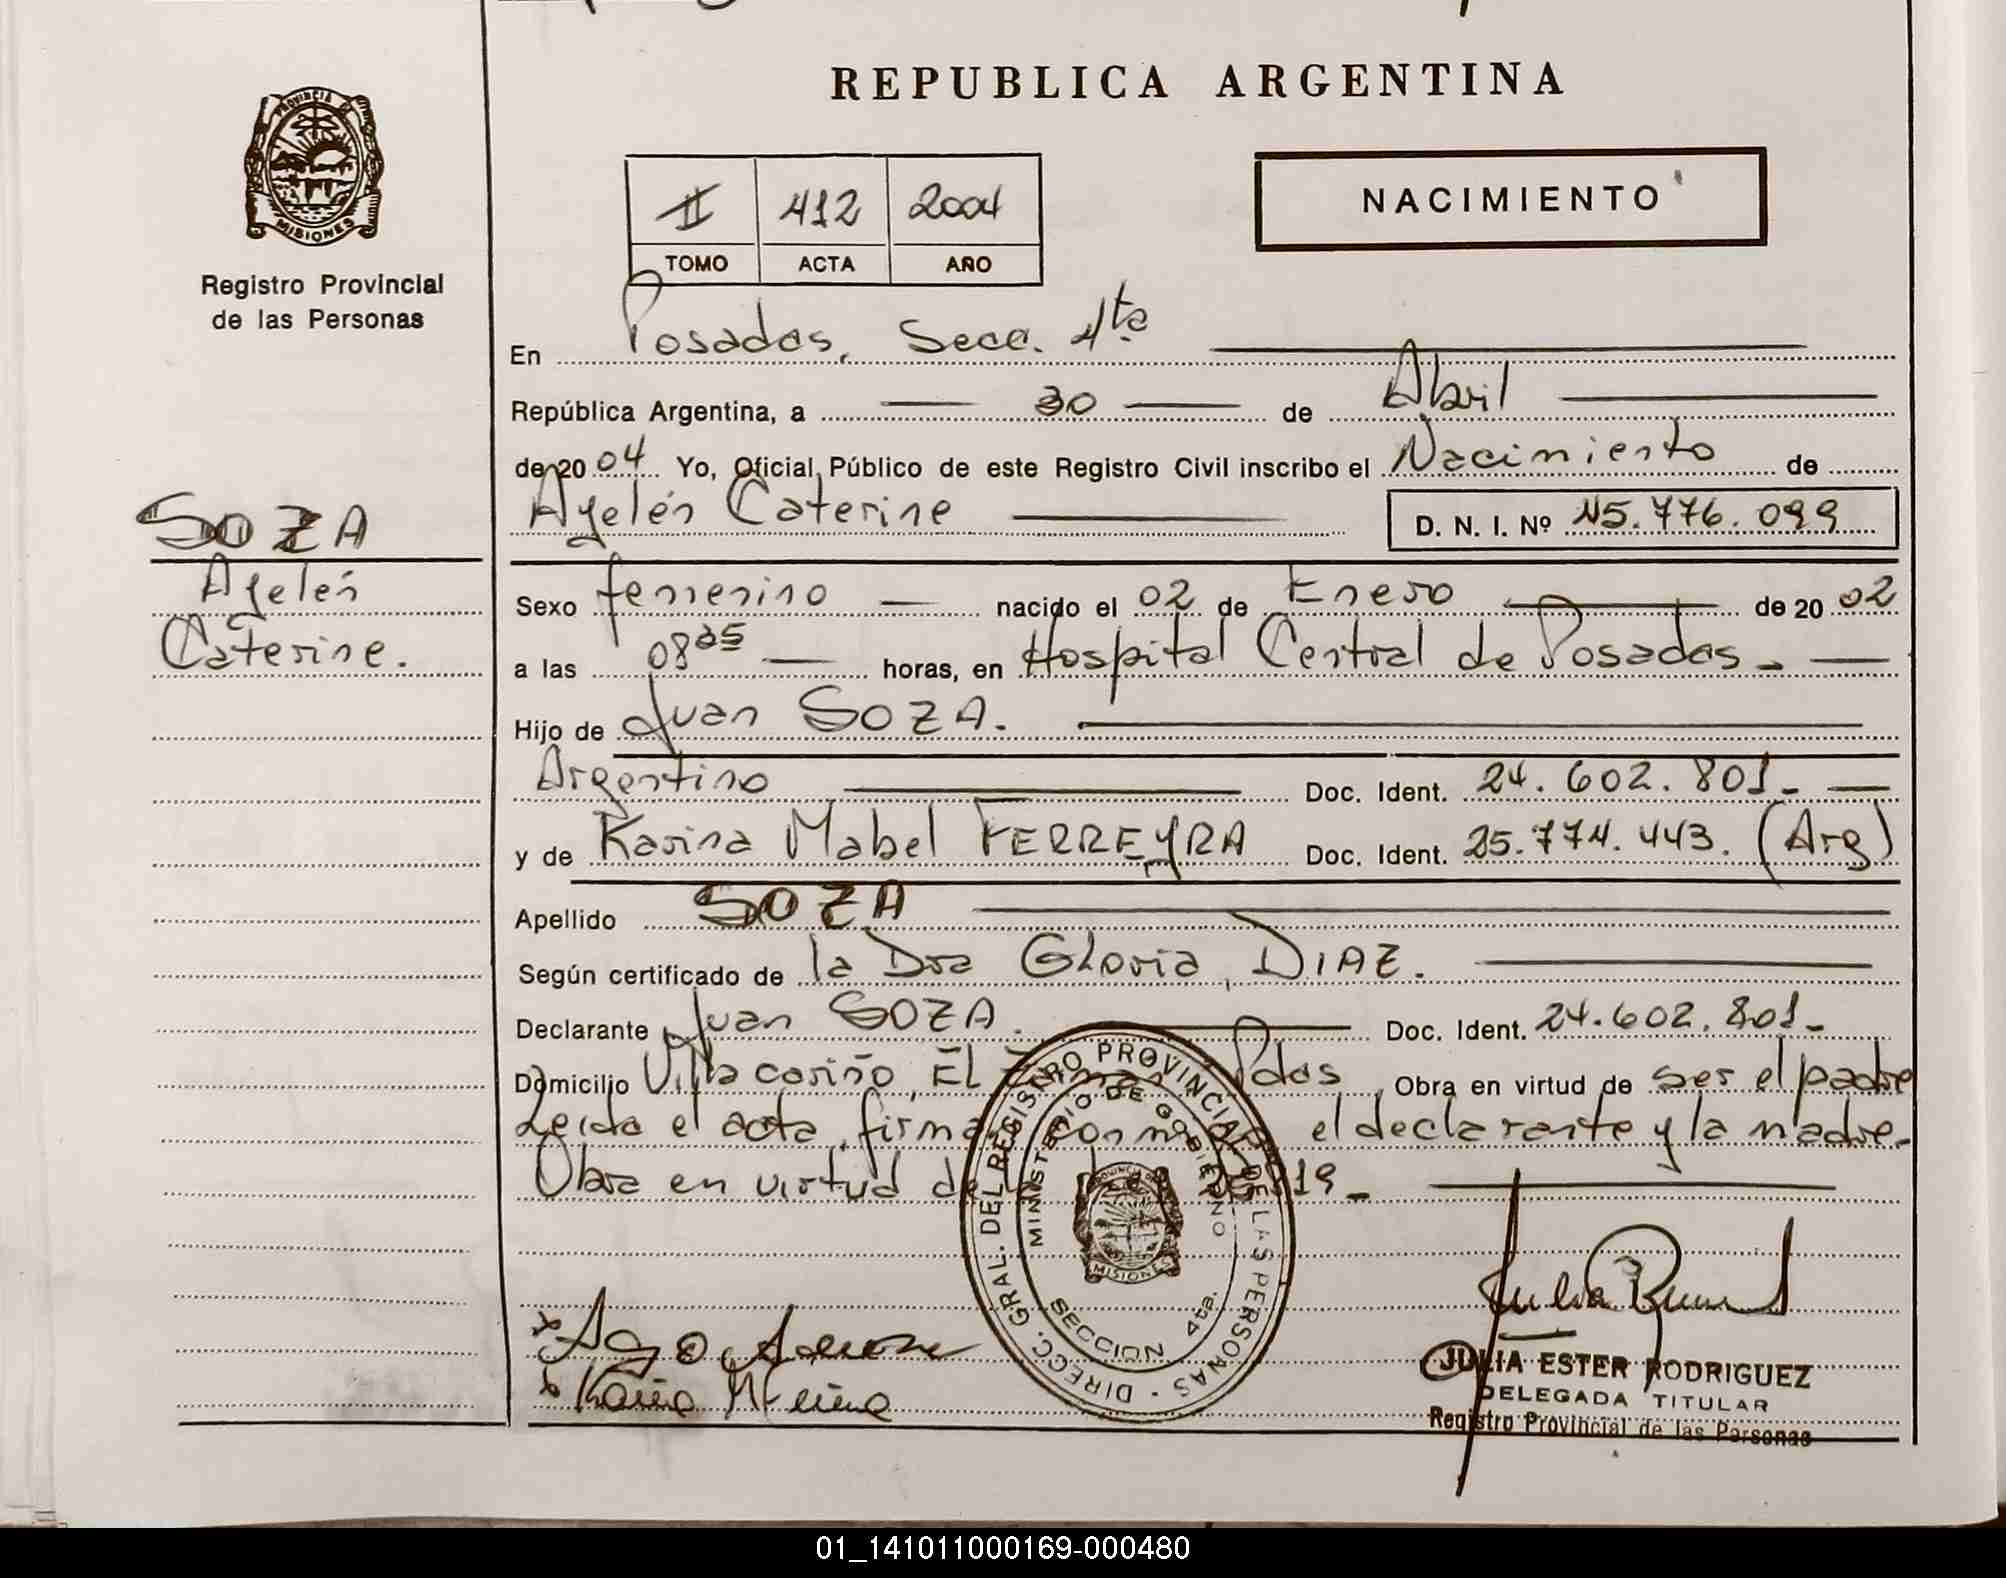 REPUBLICA ARGENTINA
PROVINCIA DE
MISIONES
Registro Provincial
de las Personas
II 412 2004
TOMO ACTA AÑO
NACIMIENTO
En Posadas, Secc. 4ta
República Argentina, a 30 de Abril
de 20 04 Yo, Oficial Público de este Registro Civil inscribo el Nacimiento de
Ayelén Caterine D. N. I. Nº 45.776.099
SOZA
Ayelén
Caterine.
Sexo femenino nacido el 02 de Enero de 20 02
a las 08 25 horas, en Hospital Central de Posadas
Hijo de Juan SOZA.
Argentino Doc. Ident. 24.602.801
y de Karina Mabel FERREYRA Doc. Ident. 25.774.443. (Arg)
Apellido SOZA
Según certificado de la Dra Gloria DIAZ.
Declarante Juan SOZA. Doc. Ident. 24.602.801
Domicilio Villa cariño, El Pdas Obra en virtud de ser el padre
Leida el acta, firma el declarante y la madre.
Obra en virtud de
DIRECC. GRAL. DEL REGISTRO PROVINCIAL DE LAS PERSONAS
MINISTERIO DE GOBIERNO
MISIONES
SECCION 4ta.
JULIA ESTER RODRIGUEZ
DELEGADA TITULAR
Registro Provincial de las Personas
01_141011000169-000480